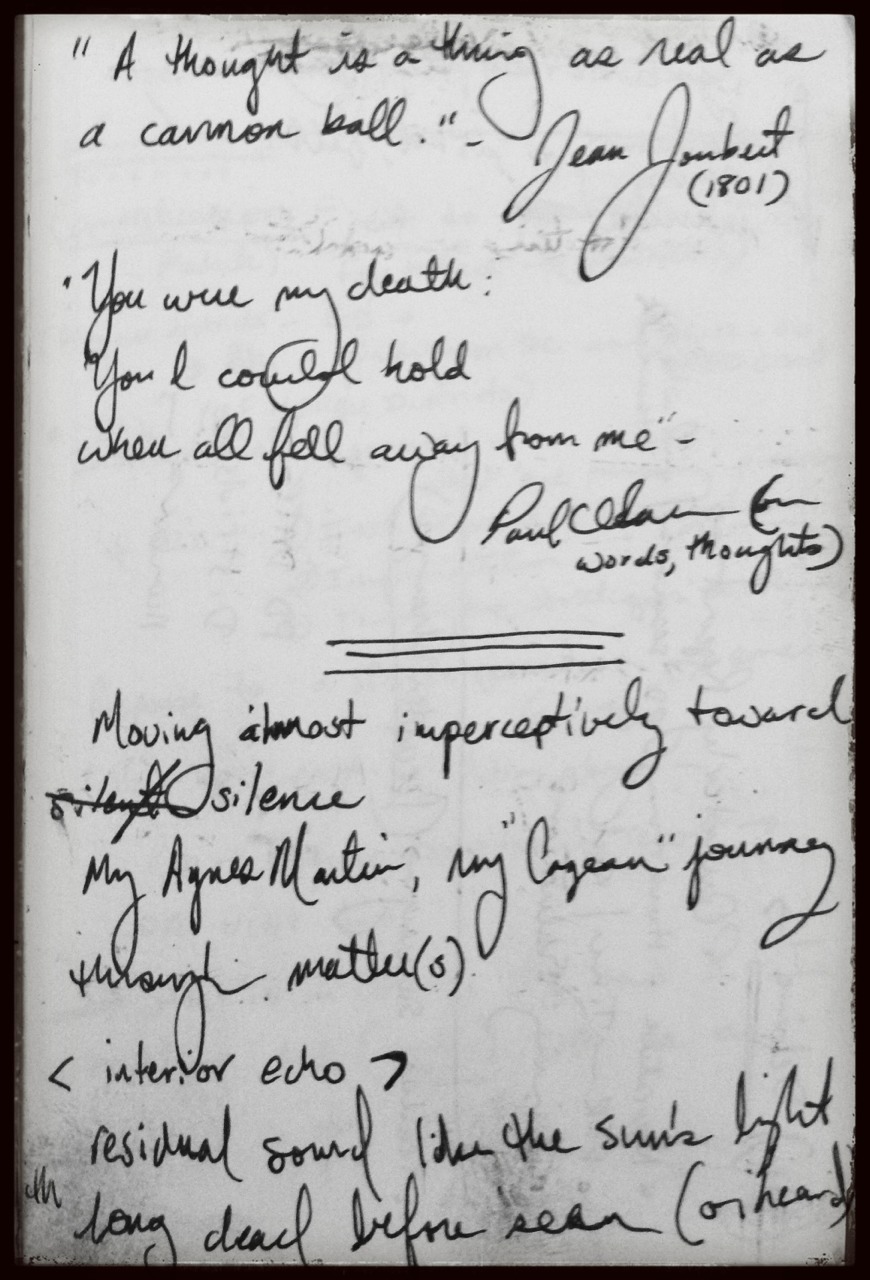 "A thought is a thing as real as
a cannon ball." -
Jean Joubert
(1801)
"You were my death:
"You I could hold
when all fell away from me" -
Paul Celan (on
words, thoughts)
Moving almost imperceptively toward
silent silence
My Agnes Martin, my "Cagean" journey
through matter(s)
< interior echo >
residual sound like the sun's light
long dead before seen (or heard)